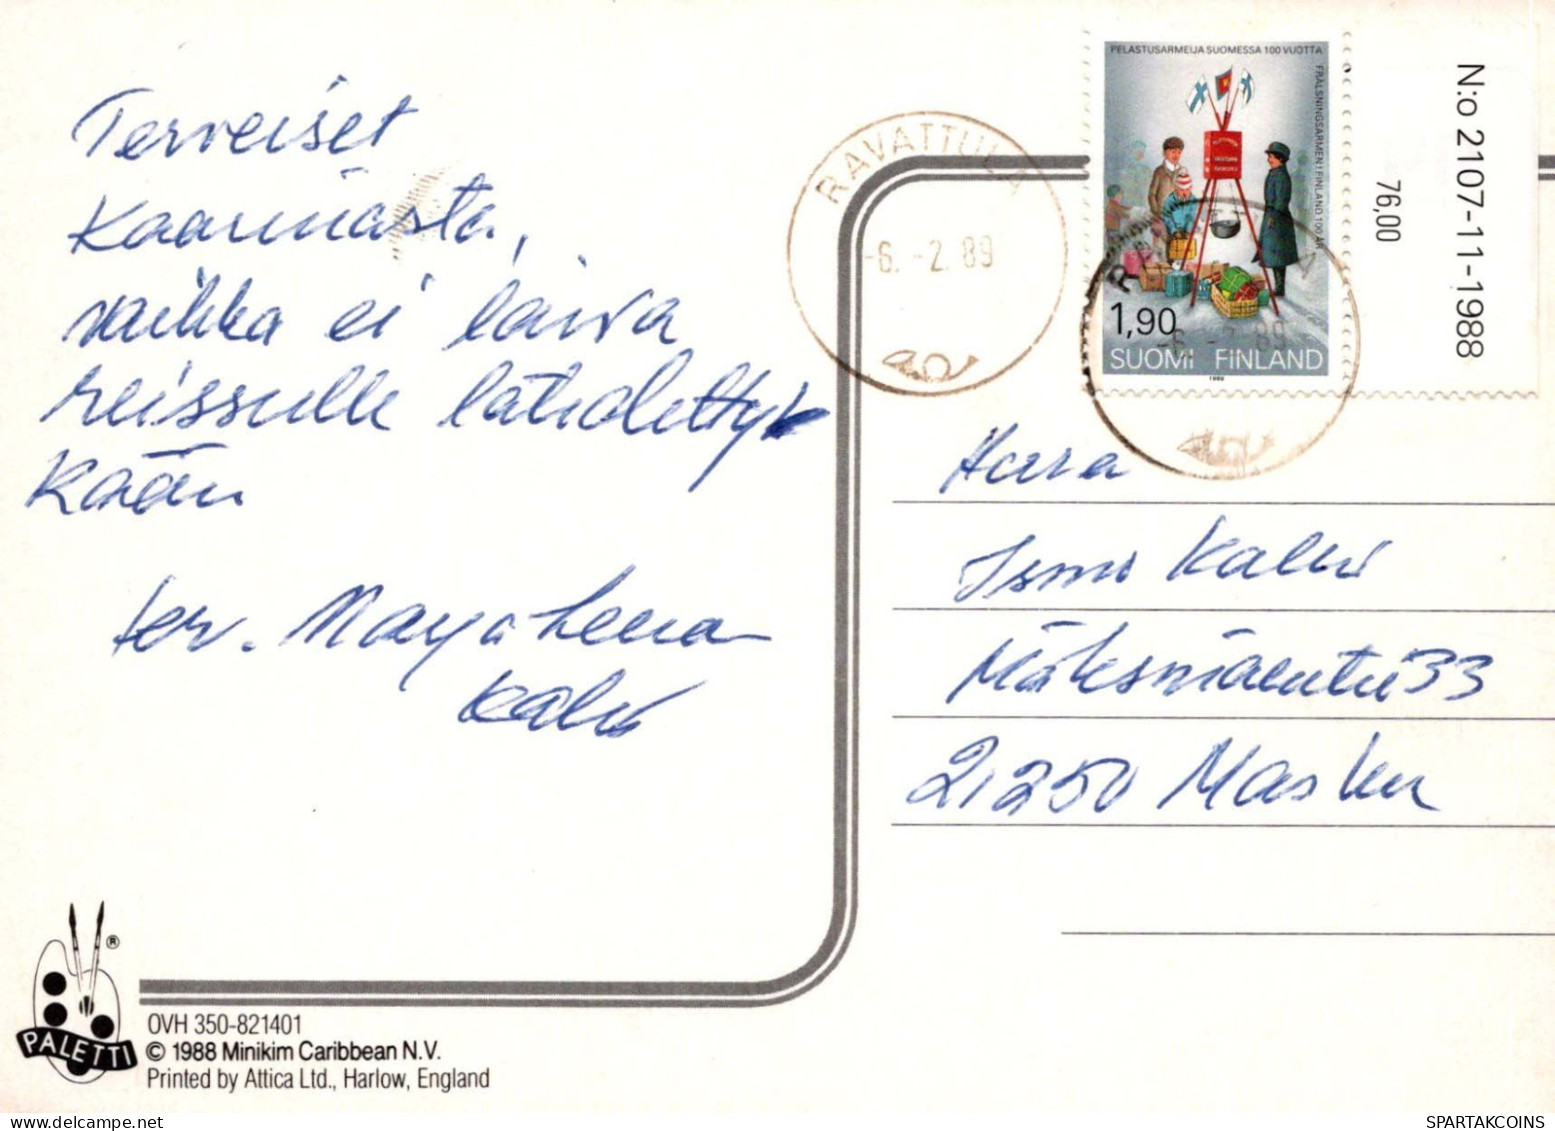 Terveiset
Kaarinasta,
vaikka ei laiva
reissulle lähdetty
kään
terv. Marja-Leena
PELASTUSARMEIJA SUOMESSA 100 VUOTTA
FRÄLSNINGSARMEN I FINLAND 100 ÅR
1,90
SUOMI FINLAND
1989
N:o 2107-11-1988
76,00
RAVATTULA
-6.-2.89
-6.-2.89
Herra
Ismo
33
21250 Masku
PALETTI
®
OVH 350-821401
© 1988 Minikim Caribbean N.V.
Printed by Attica Ltd., Harlow, England
SPARTAKCOINS